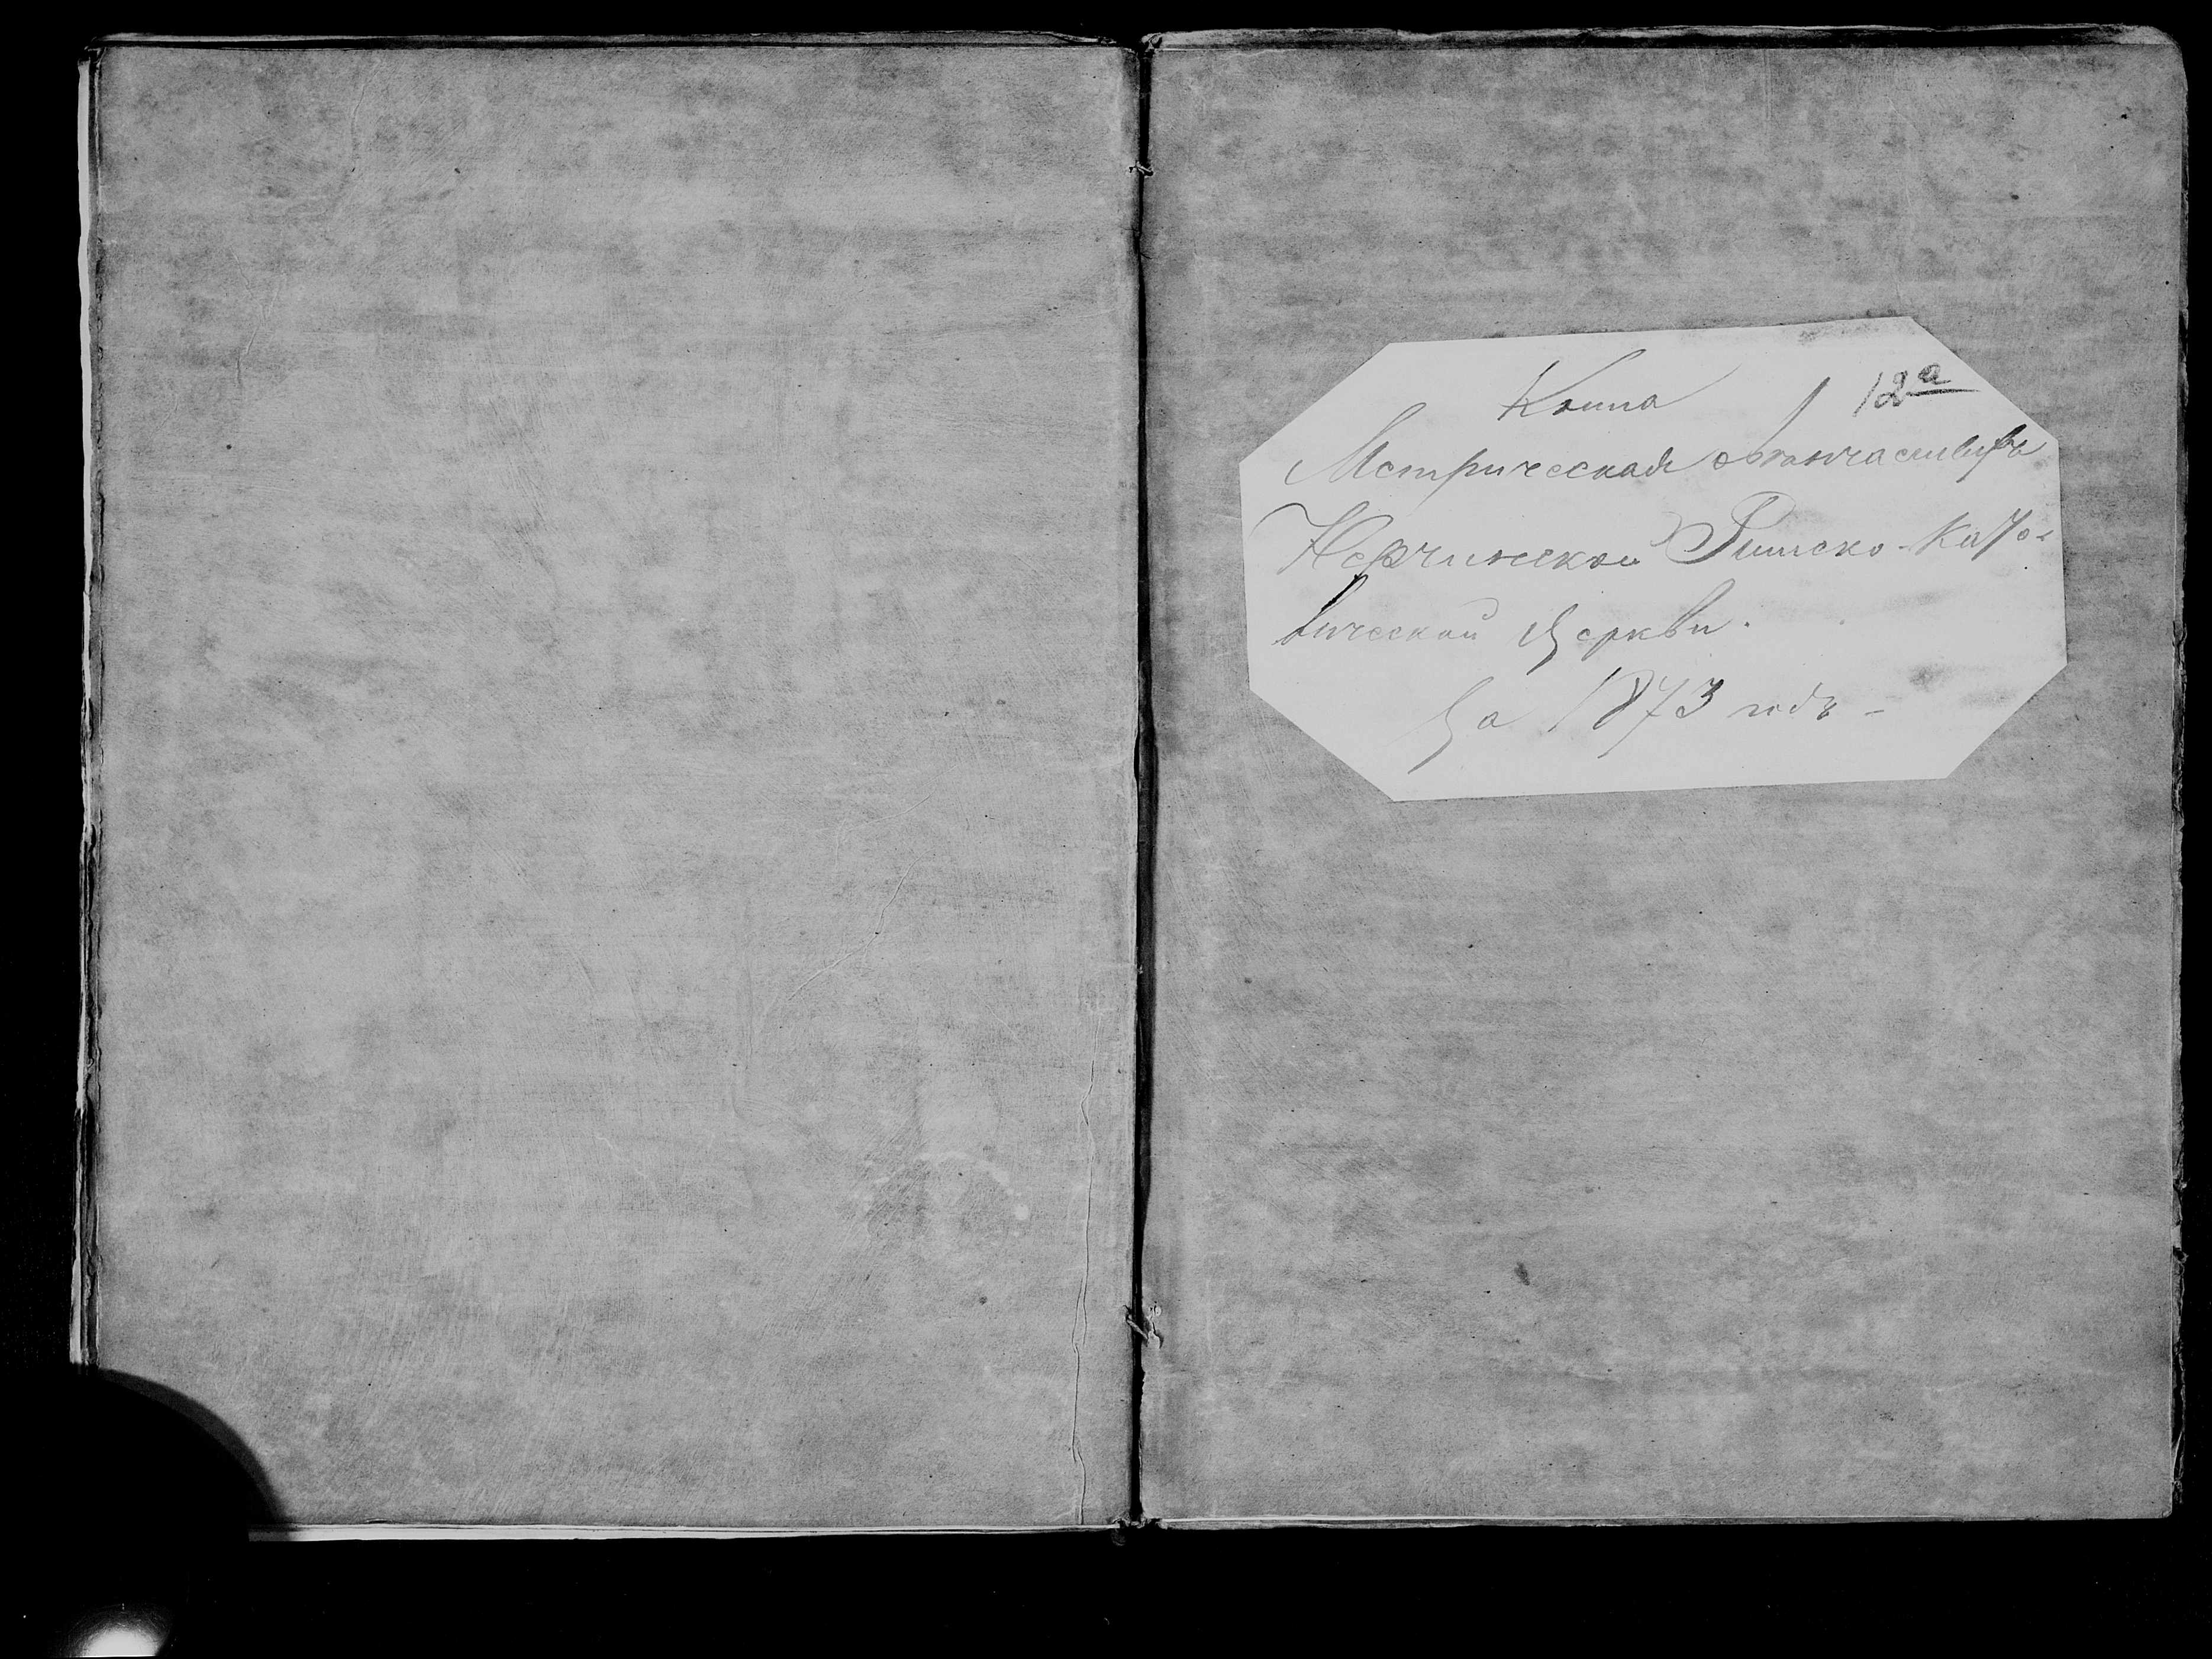 Книга 12а
Метрическая о бракосочетавшихся
Нерчинской Римско-Като-
лической Церкви.
За 1873 годъ -